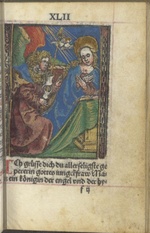 XLII
Ich grüsse dich du allerseligste ge
pererin gottes iungckfraw Ma
ein königin der engel und der hy
f ij